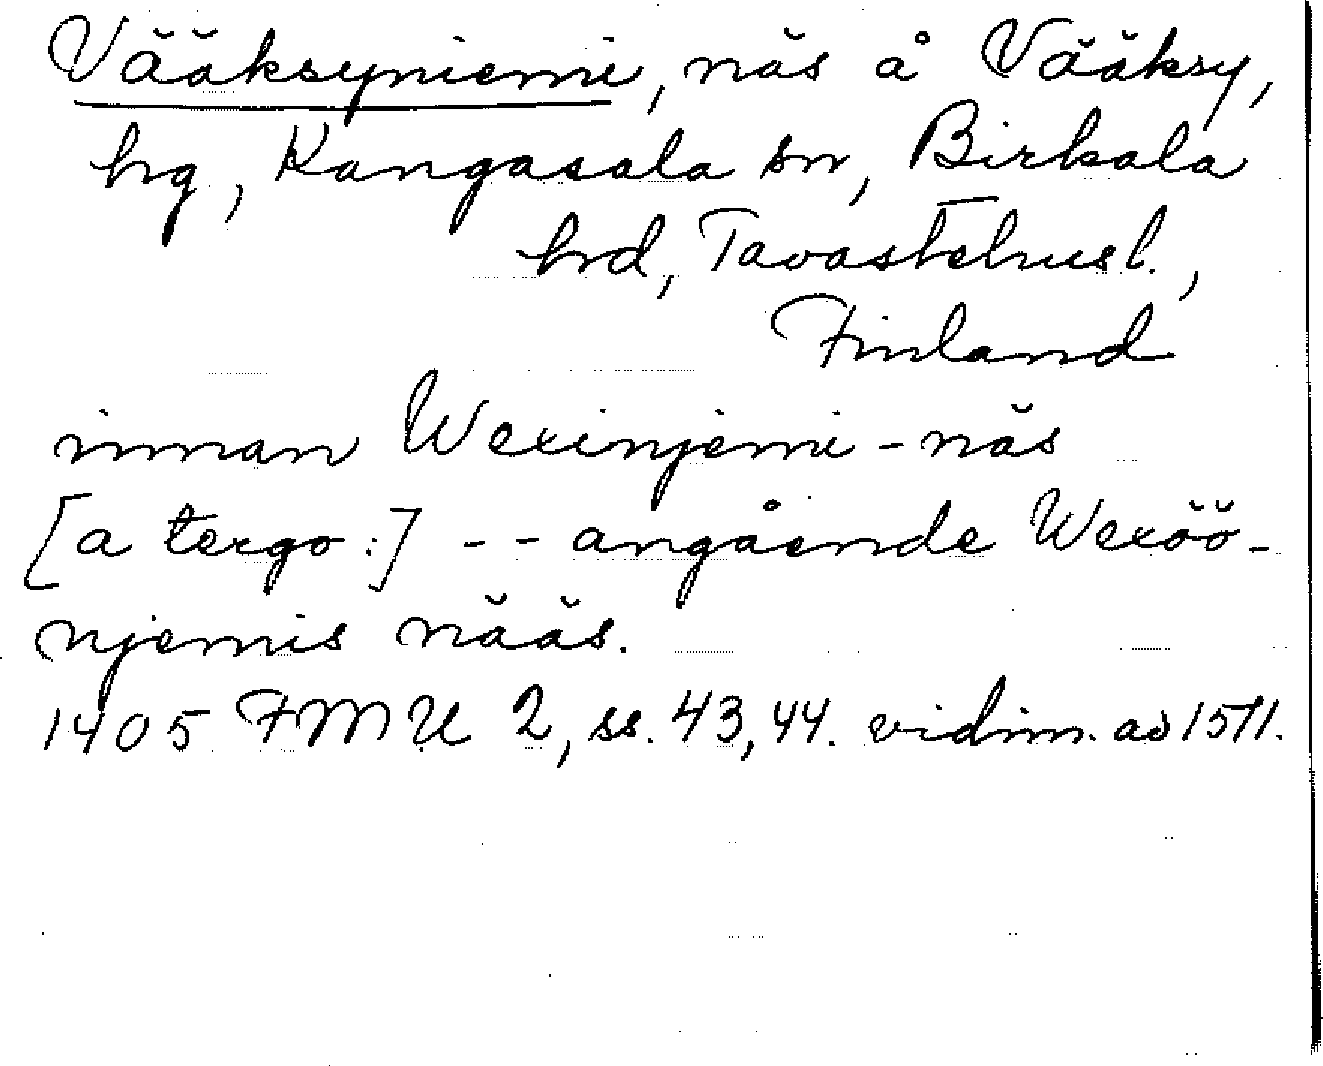 Vääksyniemi, näs å Vääksy,
hg, Kangasala sn, Birkala
hrd, Tavastehusl.,
Finland
innan Wexinjemi-näs
[a tergo:] -- angående Wexöö-
njemis nääs.
1405 FMU 2, ss. 43, 44. vidim. av 1571.